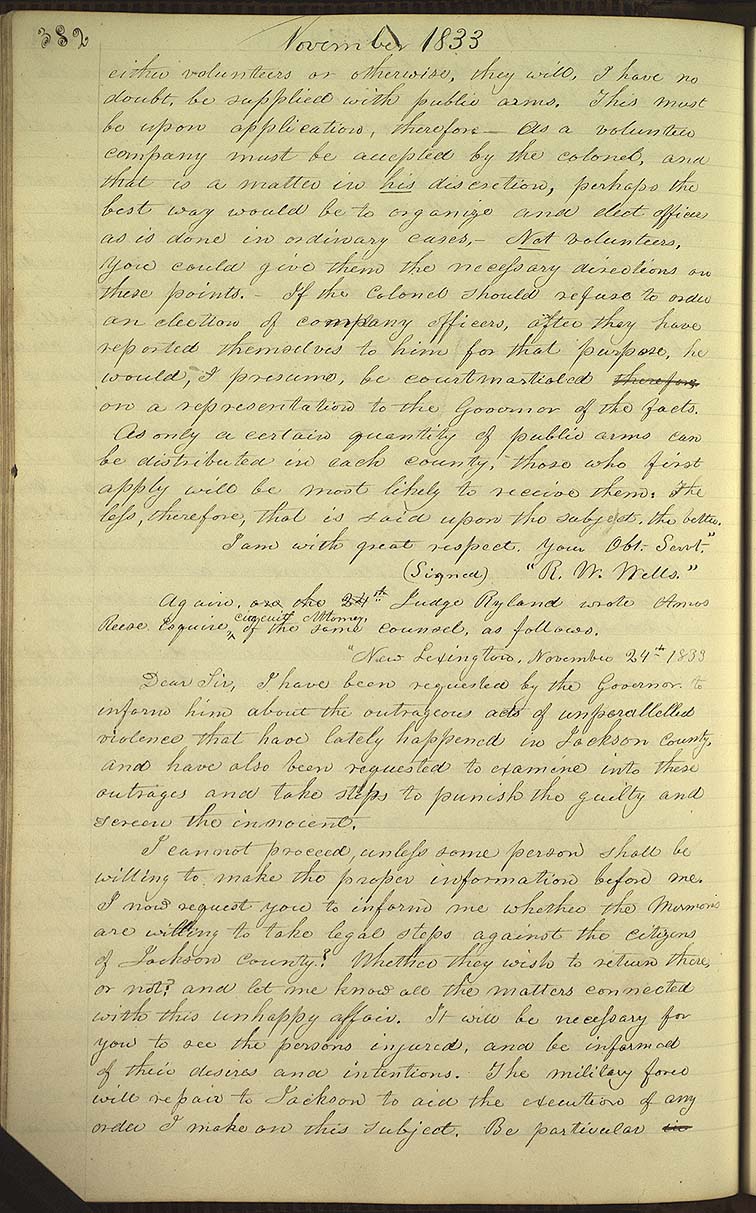 382
November 1833
either volunteers or otherwise, they will, I have no
doubt, be supplied with public arms. This must
be upon application, therefore — As a volunteer
company must be accepted by the colonel, and
that is a matter in his discretion, perhaps the
best way would be to organize and elect officers
as is done in ordinary cases, — Not volunteers,
you could give them the necessary directions on
these points. — If the Colonel should refuse to order
an election of company officers, after they have
reported themselves to him for that purpose, he
would, I presume, be courtmartialed therefore
on a representation to the Governor of the facts.
As only a certain quantity of public arms can
be distributed in each county, those who first
apply will be most likely to receive them. The
less, therefore, that is said upon the subject, the better.
I am with great respect. Your Obt. Servt."
(Signed) "R. W. Wells."
Again, on the 24th Judge Ryland wrote Amos
Reese Esquire, circuit Attorney, of the same counsel, as follows.
"New Lexington, November 24th 1833
Dear Sir, I have been requested by the Governor to
inform him about the outrageous acts of unparallelled
violence that have lately happened in Jackson County,
and have also been requested to examine into these
outrages and take steps to punish the guilty and
screen the innocent.
I cannot proceed, unless some person shall be
willing to make the proper information before me.
I now request you to inform me whether the Mormons
are willing to take legal steps against the citizens
of Jackson County? Whether they wish to return there,
or not? and let me know all the matters connected
with this unhappy affair. It will be necessary for
you to see the persons injured, and be informed
of their desires and intentions. The military force
will repair to Jackson to aid the execution of any
order I make on this subject. Be particular in